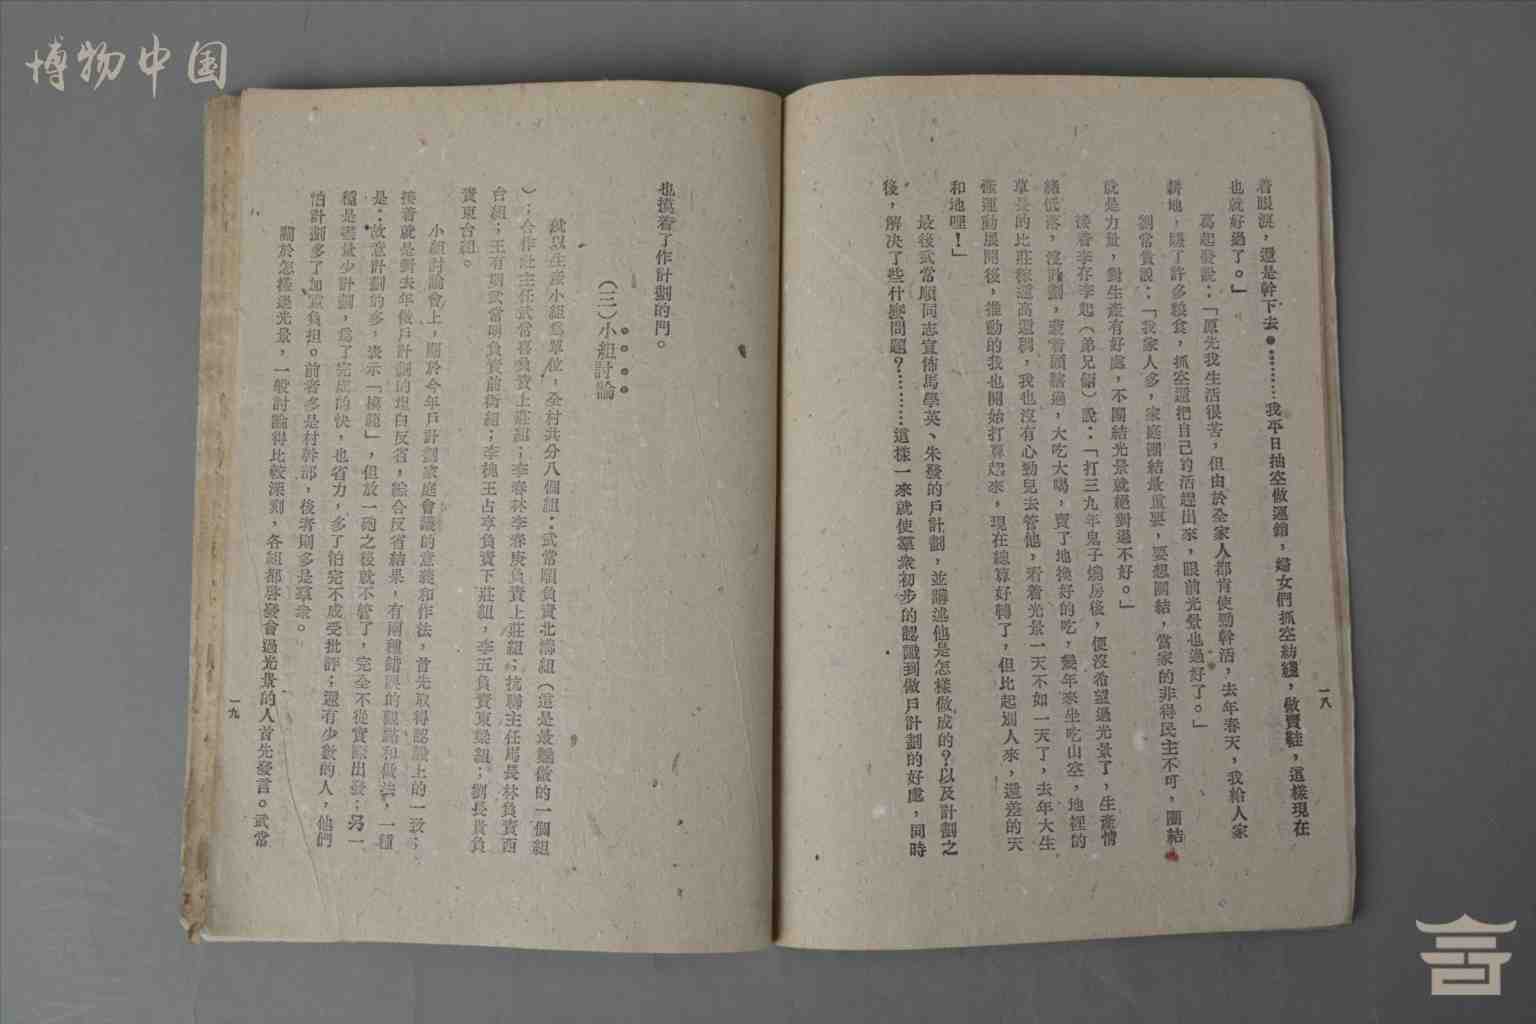 博物中国
着眼淚，還是幹下去。………我平日抽空做運銷，婦女們抓空紡綫，做賣鞋，這樣現在
也就好過了。」
萬起發說：「原先我生活很苦，但由於全家人都肯使勁幹活，去年春天，我給人家
耕地，賺了許多粮食，抓空還把自己的活趕出來，眼前光景也過好了。」
劉常貴說：「我家人多，家庭團結最重要，要想團結，當家的非得民主不可，團結
就是力量，對生產有好處，不團結光景就絕對過不好。」
接着李存李起（弟兄倆）說：「打三九年鬼子燒房後，便沒希望過光景了，生產情
緒低落，沒計劃，蒙着頭瞎過，大吃大喝，賣了地換好的吃，幾年來坐吃山空，地裡的
草長的比莊稼還高還稠，我也沒有心勁兒去管他，看着光景一天不如一天了，去年大生
產運動展開後，推動的我也開始打算起來，現在總算好轉了，但比起別人來，還差的天
和地哩！」
最後武常順同志宣佈馬學英、朱發的戶計劃，並講述他是怎樣做成的？以及計劃之
後，解决了些什麼問題？…………這樣一來就使羣衆初步的認識到做戶計劃的好處，同時
一八
也摸着了作計劃的門。
（三）小組討論
就以生產小組爲單位，全村共分八個組：武常順負責北灣組（這是最難做的一個組
）；合作社主任武常喜負責上莊組；李春林李春庚負責上莊組；抗聯主任馬長林負責西
台組；王有朝武常明負責前街組；李槐王占亨負責下莊組，李五負責東梁組；劉長貴負
責東台組。
小組討論會上，關於今年戶計劃家庭會議的意義和作法，首先取得認識上的一致；
接着就是對去年做戶計劃的坦白反省，綜合反省結果，有兩種錯誤的觀點和做法，一種
是：故意計劃的多，表示「模範」，但放一砲之後就不管了，完全不從實際出發；另一
種是盡量少計劃，爲了完成的快，也省力，多了怕完不成受批評；還有少數的人，他們
怕計劃多了加重負担。前者多是村幹部，後者則多是羣衆。
關於怎樣過光景，一般討論得比較深刻，各組都啓發會過光景的人首先發言。武常
一九